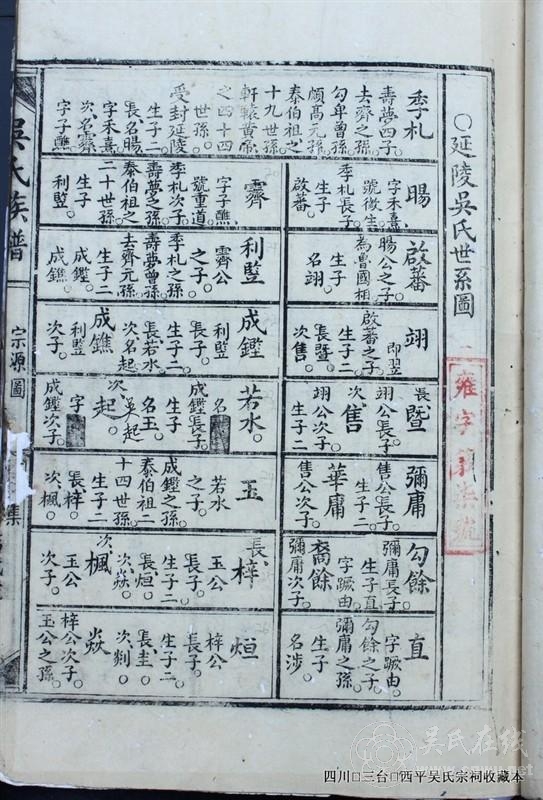 ○延陵吳氏世系圖 一
雍字
號
季札
壽夢四子。
去齊之孫
勾卑曾孫
頗高元孫
泰伯祖之
十九世孫
軒轅黃帝
之四十四
世孫。
受封延陵
生子二
長名暘
字禾熹
次名霽
字子醮
暘
字禾熹
號徵生
季札長子。
生子
啟蕃。
霽
字子醮
號重道。
季札次子。
壽夢之孫
泰伯祖之
二十世孫
生子
利監。
啟蕃
暘公之子。
為魯國相
生子
名翊。
利監
霽公
之子。
季札之孫
壽夢曾孫
去齊元孫
生子二
成鏗。
成鐎。
翊
即翌
啟蕃之子。
生子二
長暨。
次售。
成鏗
利監
長子。
生子二
長若水
次名起
成鐎
利監
次子。
長暨
翊公長子。
次售
翊公次子。
生子二
若水。
名
成鏗長子。
生子
名玉。
次起。
吳起
字
成鏗次子。
彌庸
售公長子。
華庸
售公次子。
玉
若水
之子。
成鏗之孫
泰伯祖二
十四世孫
生子二
長梓。
次楓。
勾餘
彌庸長子。
生子直
字蹶由。
裔餘
彌庸次子。
長梓
玉公
長子。
生子二
長烜。
次焱。
次楓
玉公
次子。
直
字蹶由。
勾餘之子
彌庸之孫。
生子
名涉。
烜
梓公
長子。
生子二
長圭。
次剡。
焱
梓公次子。
玉公之孫
吳氏族譜
宗源圖
集
吳氏在线
四川□三台□西平吴氏宗祠收藏本